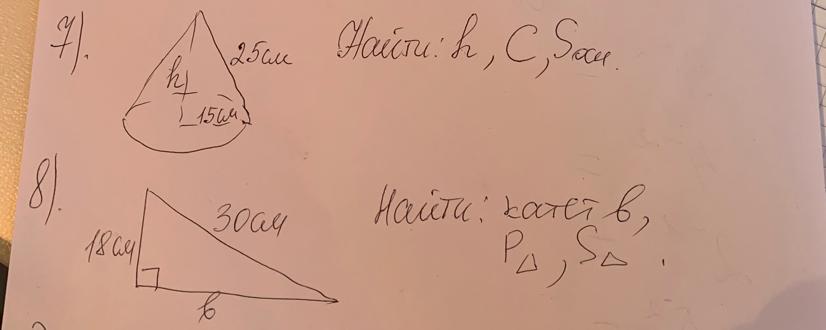 7).
25см
Найти: h, C, Sосн.
h
15см
8).
30см
Найти: катет b,
18см
P△, S△.
b